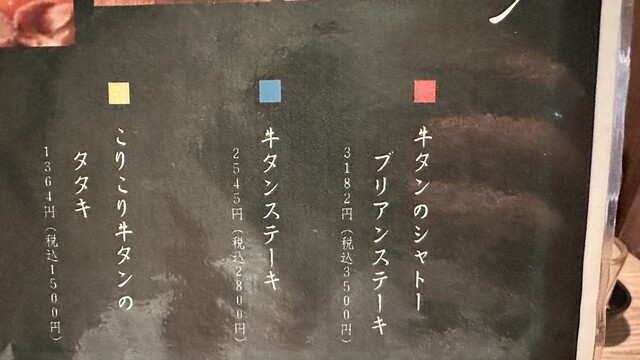 牛タンのシャトー
ブリアンステーキ
3182円（税込3500円）
牛タンステーキ
2545円（税込2800円）
こりこり牛タンの
タタキ
1364円（税込1500円）